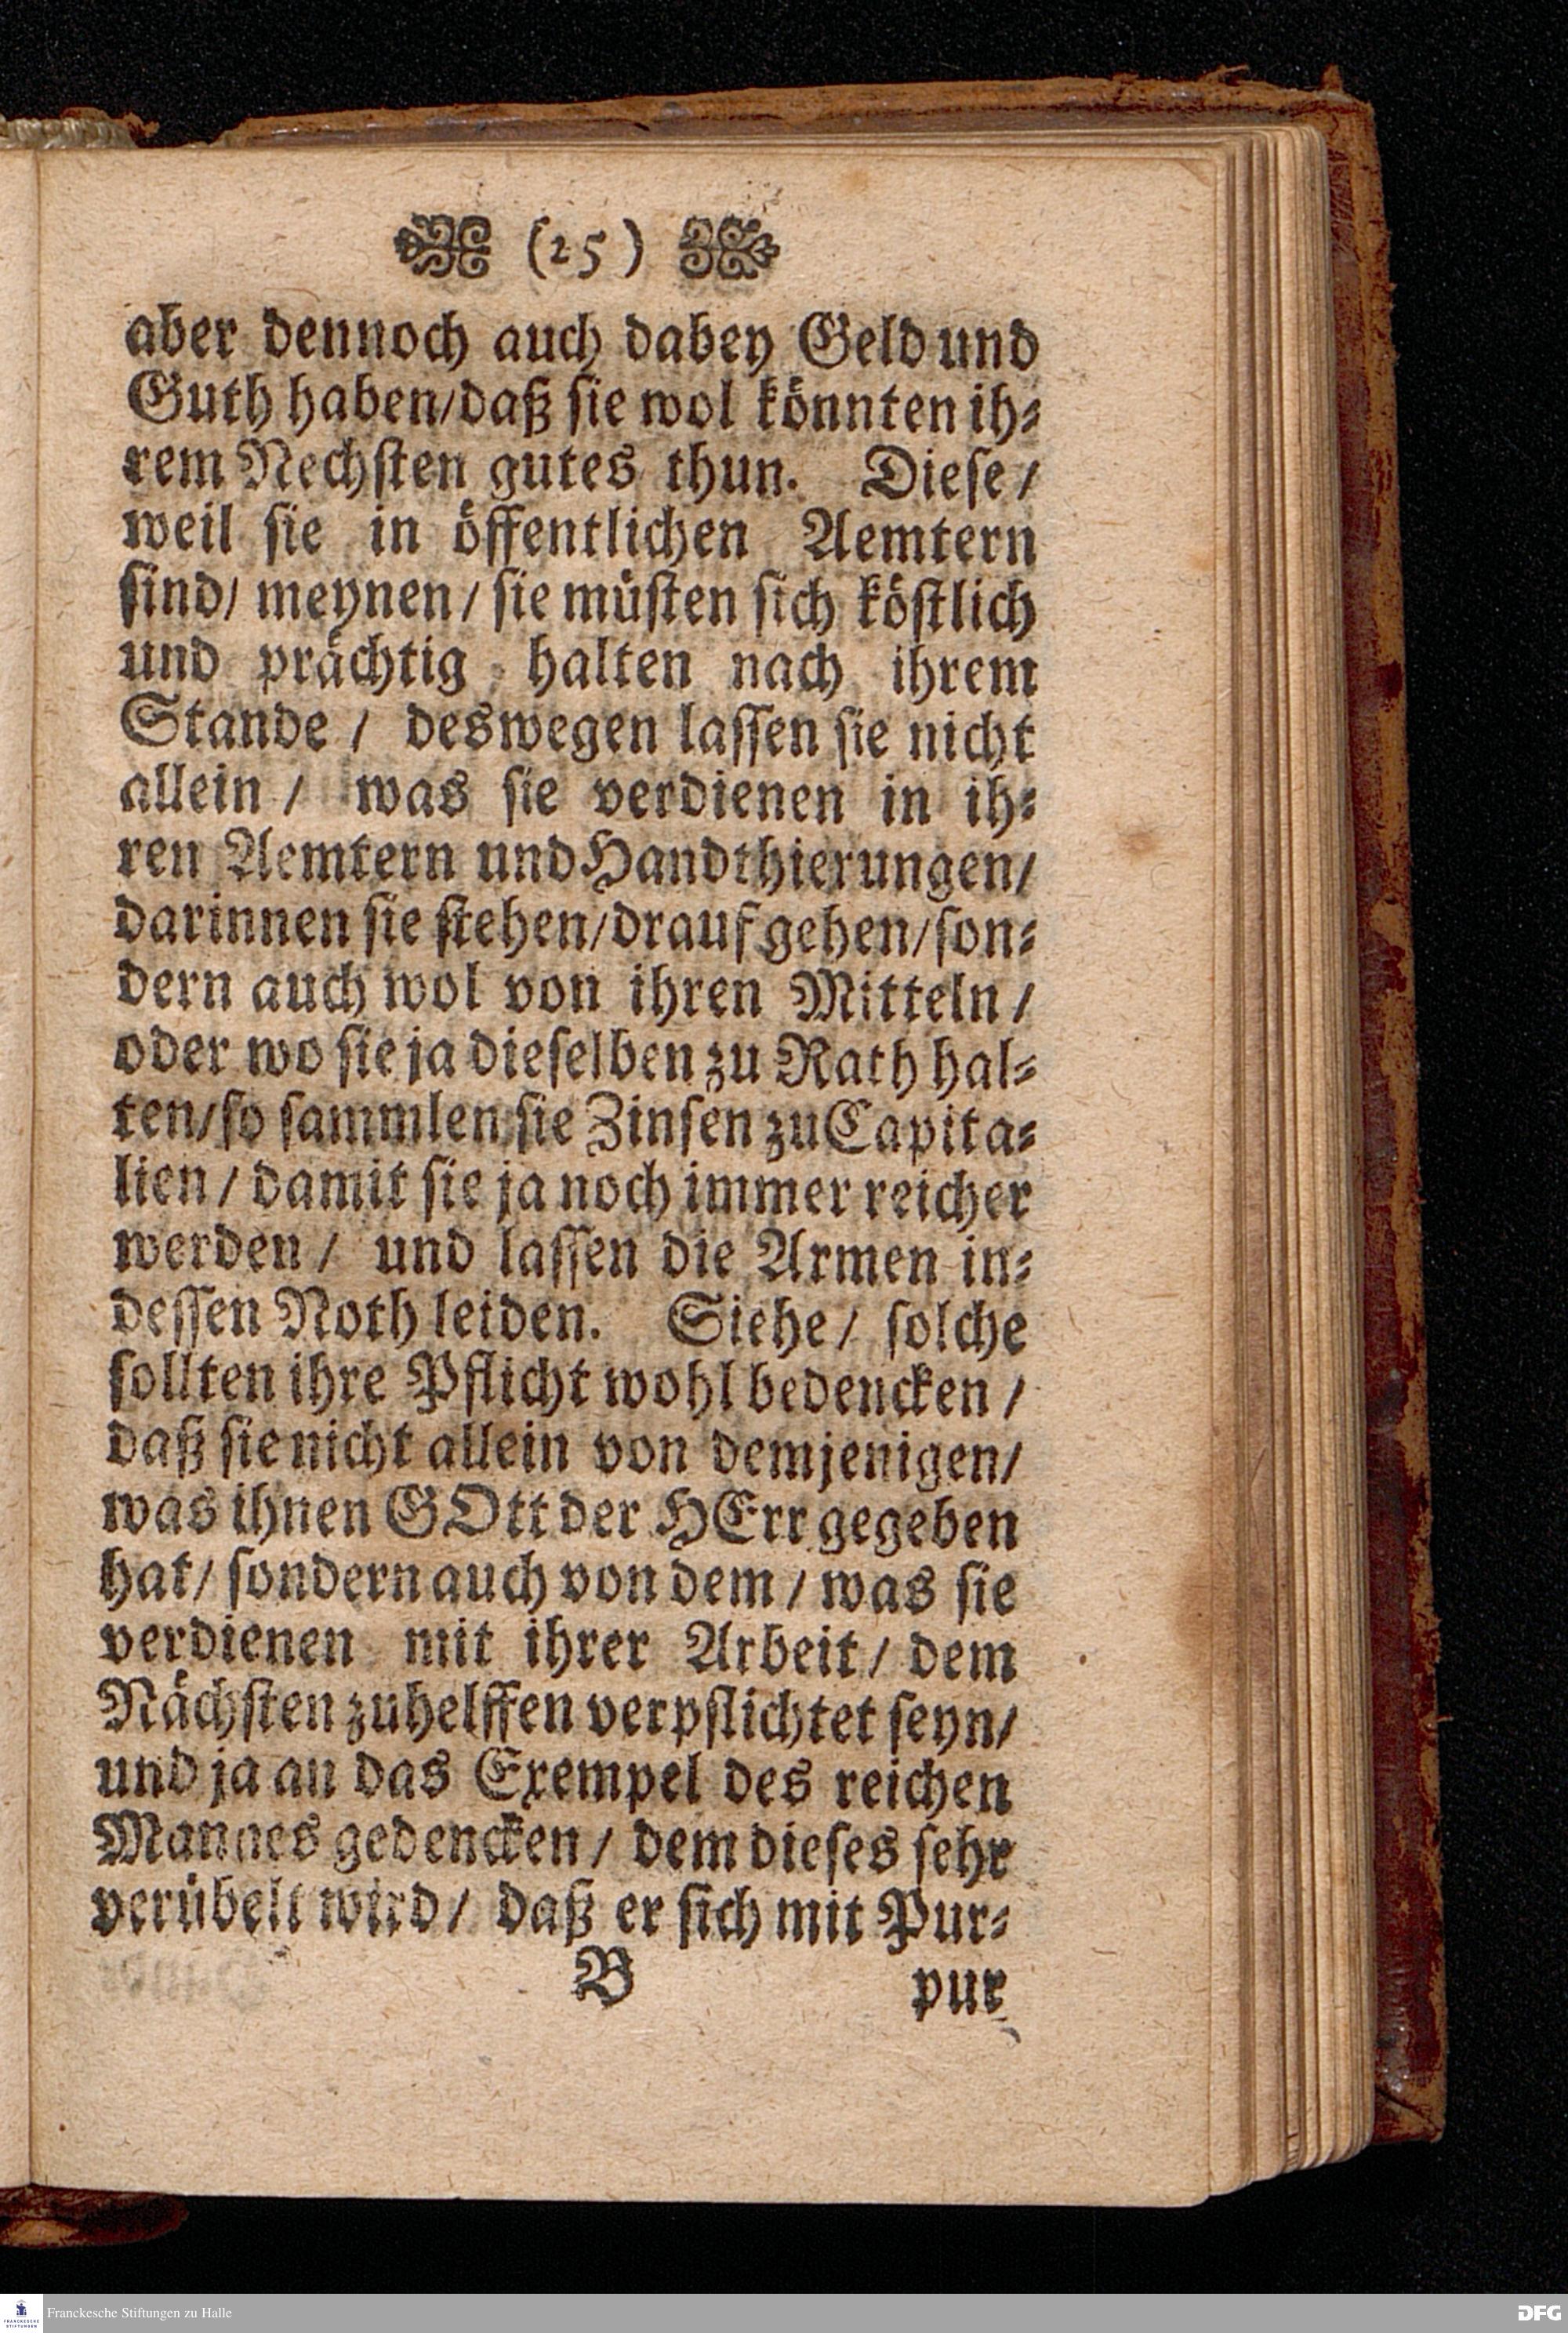 (25)
aber dennoch auch dabey Geld und
Guth haben/daß sie wol könnten ih⸗
rem Nechsten gutes thun. Diese/
weil sie in öffentlichen Aemtern
sind/ meynen/ sie müsten sich köstlich
und prächtig halten nach ihrem
Stande/ deswegen lassen sie nicht
allein/ was sie verdienen in ih⸗
ren Aemtern und Handthierungen/
darinnen sie stehen/drauf gehen/son⸗
dern auch wol von ihren Mitteln/
oder wo sie ja dieselben zu Rath hal⸗
ten/so sammlen sie Zinsen zu Capita⸗
lien/ damit sie ja noch immer reicher
werden/ und lassen die Armen in⸗
dessen Noth leiden. Siehe/ solche
sollten ihre Pflicht wohl bedencken/
daß sie nicht allein von demjenigen/
was ihnen GOtt der HErr gegeben
hat/ sondern auch von dem/ was sie
verdienen mit ihrer Arbeit/ dem
Nächsten zu helffen verpflichtet seyn/
und ja an das Exempel des reichen
Mannes gedencken/ dem dieses sehr
verübelt wird/ daß er sich mit Pur⸗
B pur
Franckesche Stiftungen zu Halle
DFG